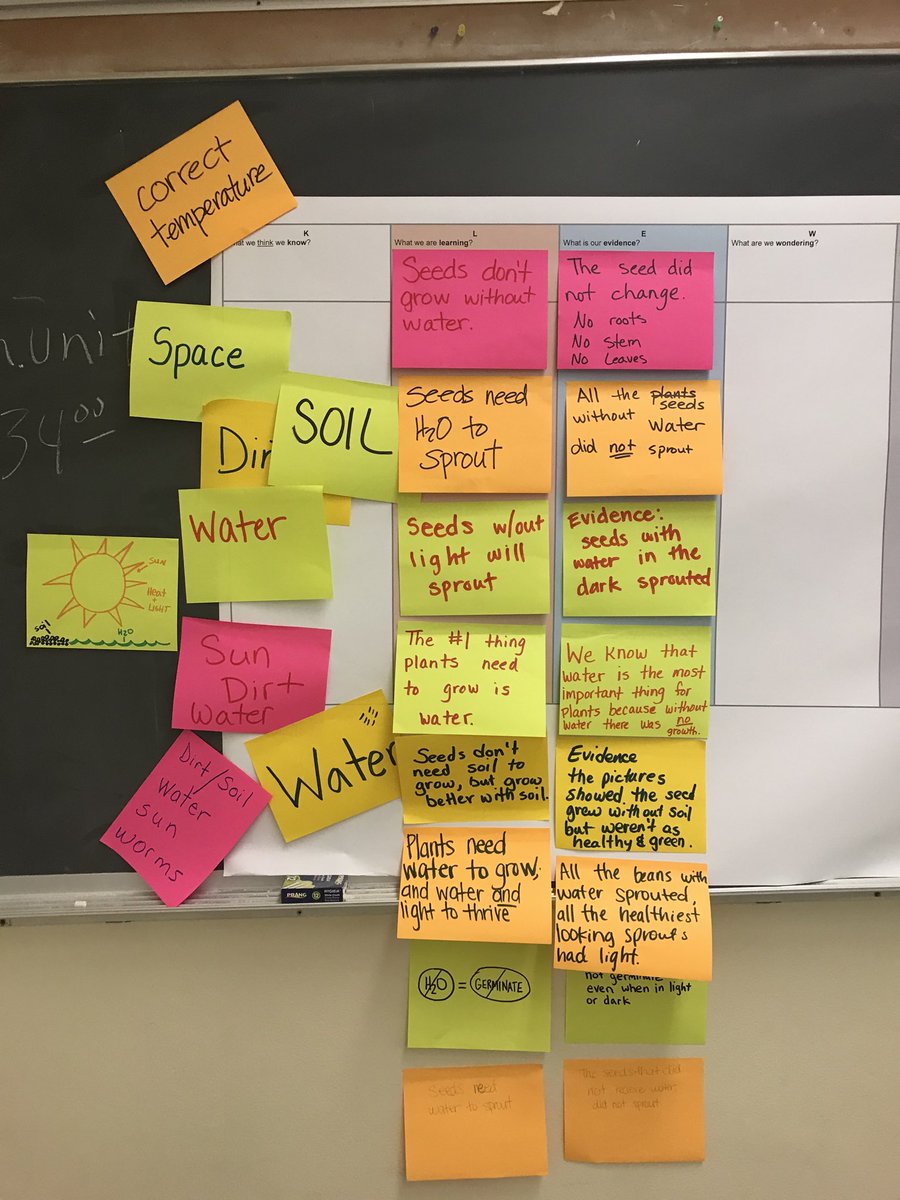 correct
temperature
K
hat we think we know?
L
What we are learning?
E
What is our evidence?
W
What are we wondering?
n. Unit
34 00
Space
Dir
SOIL
Water
SUN
HEAT
+
LIGHT
soil
H2O
Sun
Dirt
water
Water
Dirt/Soil
Water
sun
worms
PRANG
Seeds don't
grow without
water.
The seed did
not change.
No roots
No stem
No Leaves
Seeds need
H2O to
sprout
All the plants
seeds
without water
did not sprout
Seeds w/out
light will
sprout
Evidence:
seeds with
water in the
dark sprouted
The #1 thing
plants need
to grow is
water.
We know that
water is the most
important thing for
plants because without
water there was no
growth.
Seeds don't
need soil to
grow, but grow
better with soil.
Evidence
the pictures
showed the seed
grew without soil
but weren't as
healthy & green.
Plants need
water to grow.
and water and
light to thrive
All the beans with
water sprouted,
all the healthiest
looking sprouts
had light.
H2O = GERMINATE
not germinate
even when in light
or dark
Seeds need
water to sprout
The seeds that did
not recieve water
did not sprout